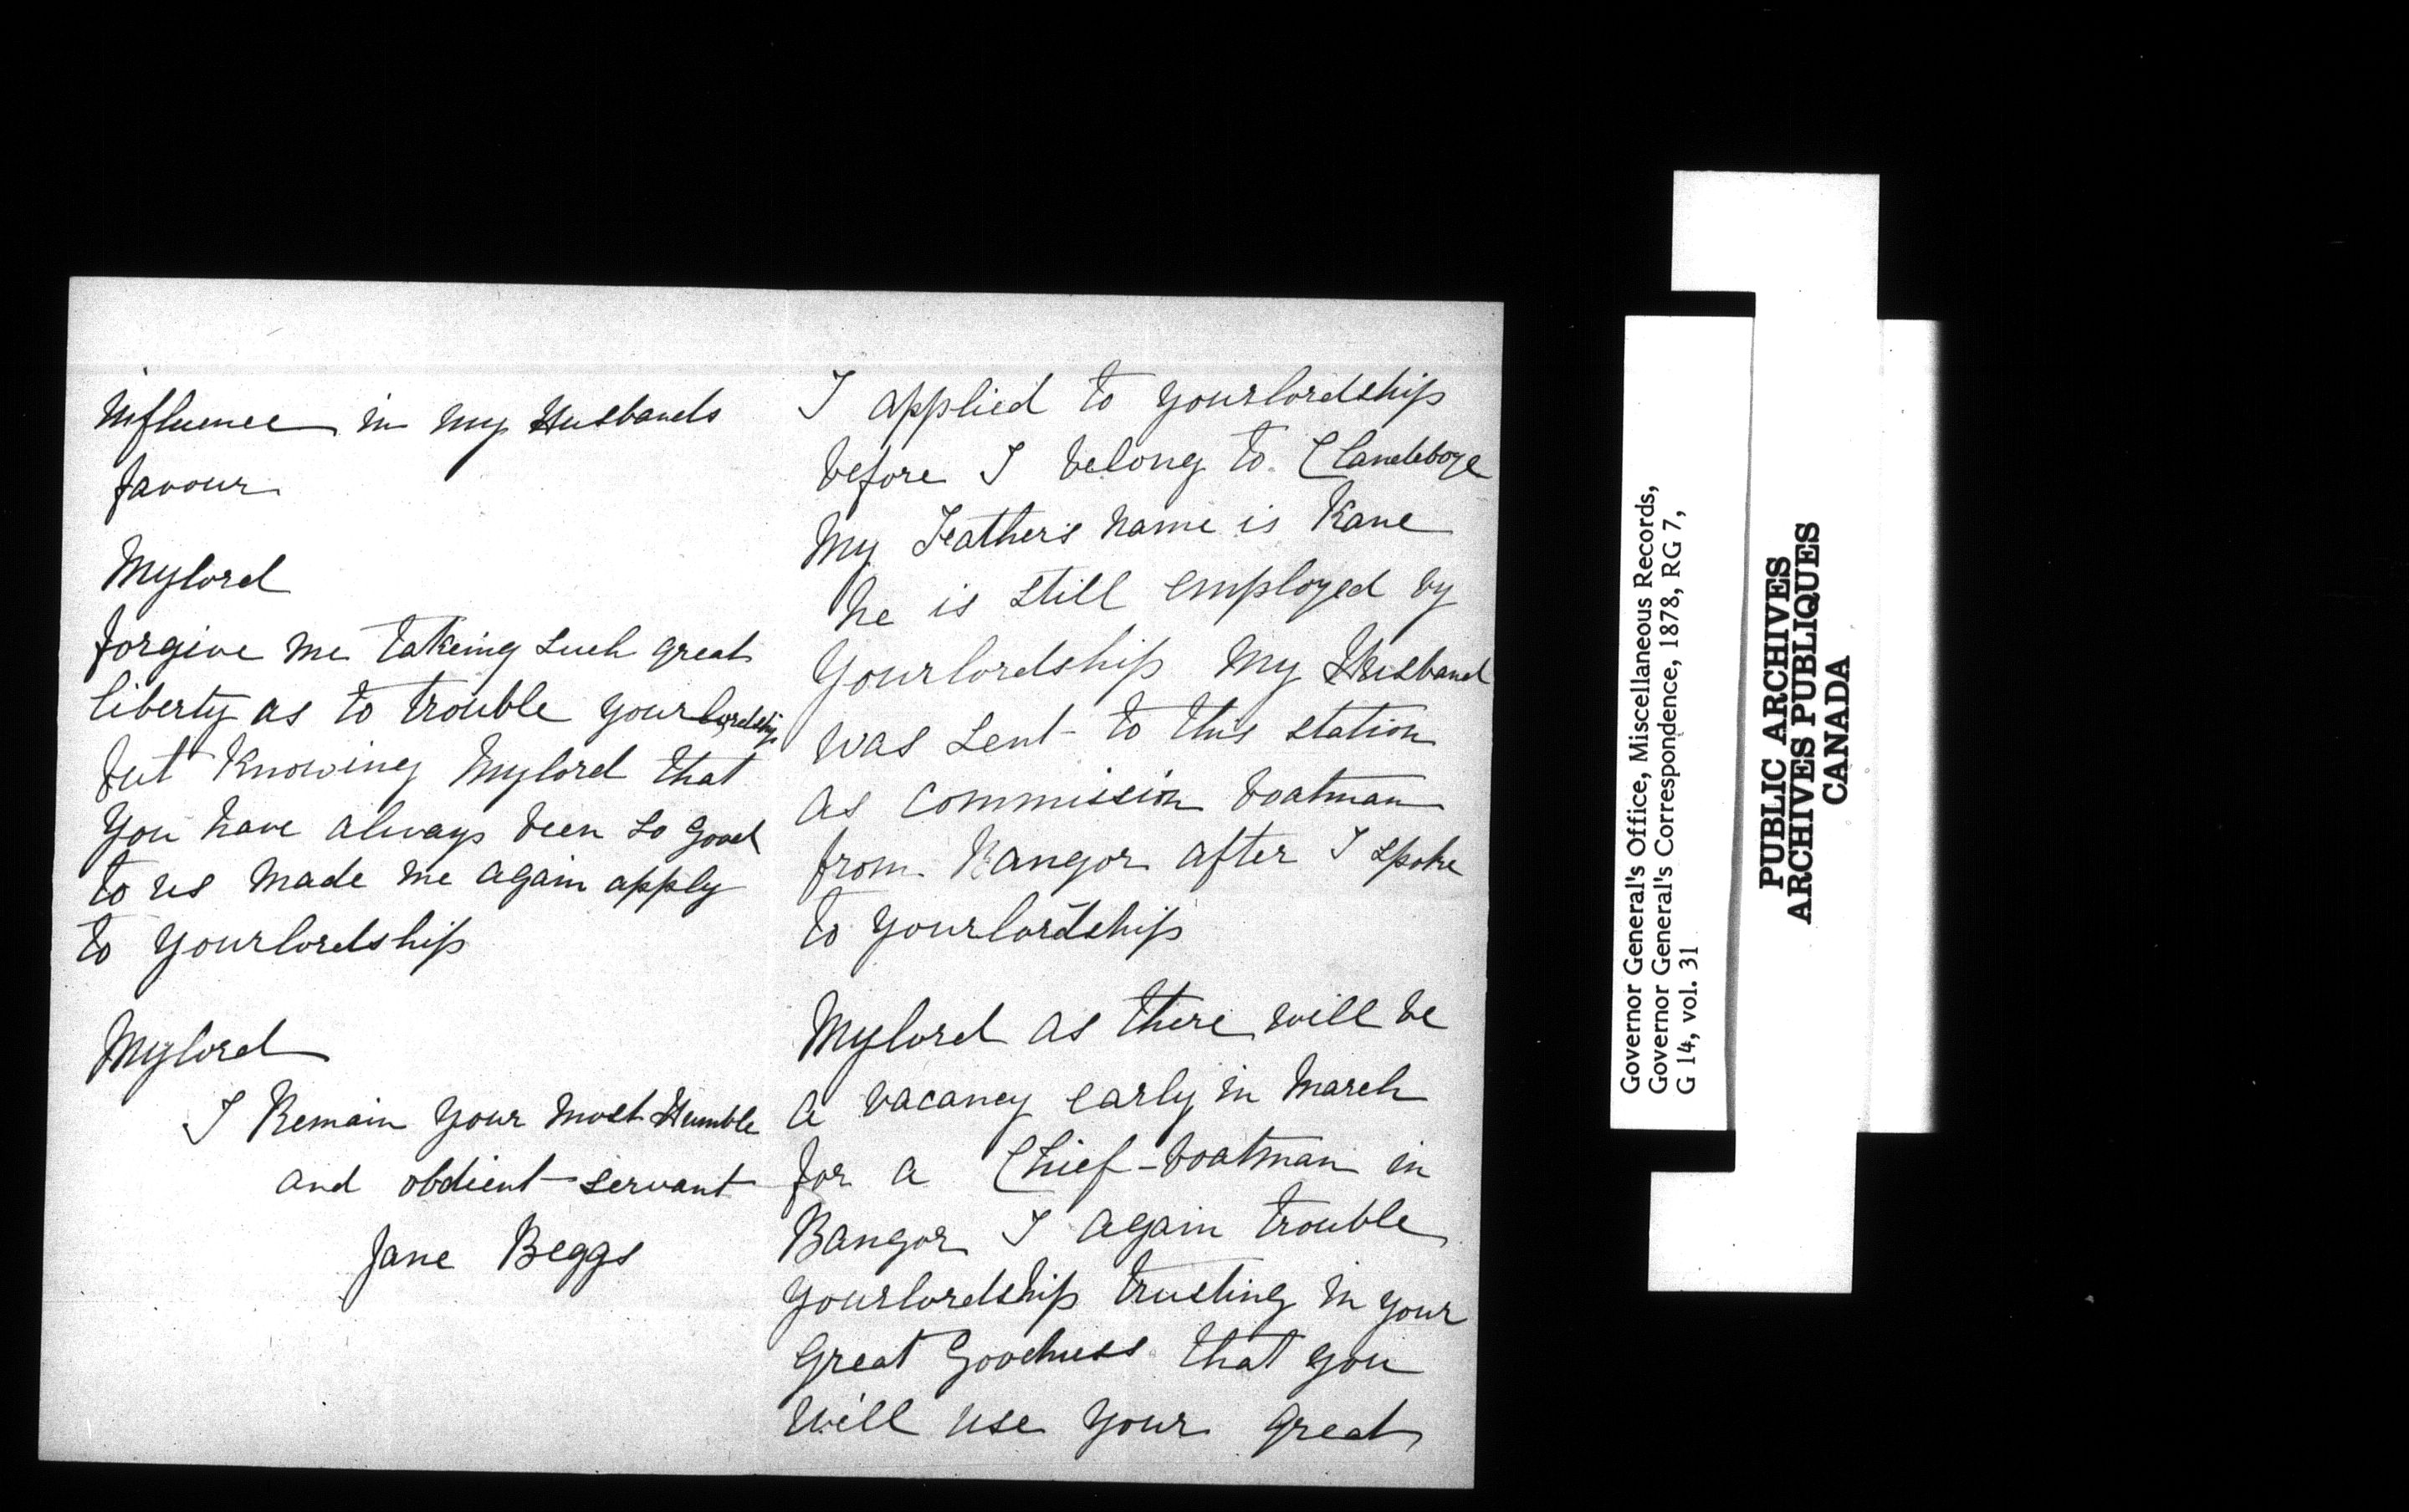 I applied to yourlordship
before I belong to Clandeboye
My Feathers name is Kane
he is still employed by
Yourlordship My Husband
was sent to this station
as commission boatman
from Bangor after I spoke
to yourlordship
Mylord as there will be
a vacancy early in March
for a Chief-boatman in
Bangor I again trouble
yourlordship trusting in your
great Goodness that you
will use your great
influence in my Husbands
favour
Mylord
forgive me takeing such great
liberty as to trouble yourlordship
but Knowing Mylord that
you have always been so good
to us made me again apply
to yourlordship
Mylord
I Remain your most Humble
and obdient servant
Jane Beggs
Governor General's Office, Miscellaneous Records,
Governor General's Correspondence, 1878, RG 7,
G 14, vol. 31
PUBLIC ARCHIVES
ARCHIVES PUBLIQUES
CANADA